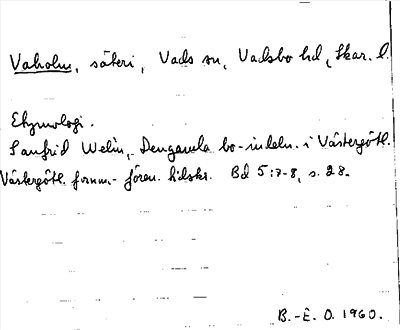 Vaholm, säteri, Vads sn, Vadsbo hd, Skar. l.
Etymologi.
Sanfrid Welin, Den gamla bo-indeln. i Västergötl.
Västergötl. fornm.- fören. tidskr. Bd 5:7-8, s. 28.
B.-E. O. 1960.